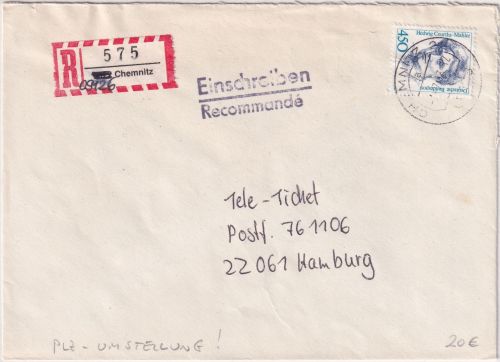 R 575
Chemnitz
09126
Einschreiben
Recommandé
450
Hedwig Courths-Mahler
Deutsche Bundespost
CHEMNITZ
Tele-Ticket
Postf. 761106
22061 Hamburg
PLZ-UMSTELLUNG!
20€